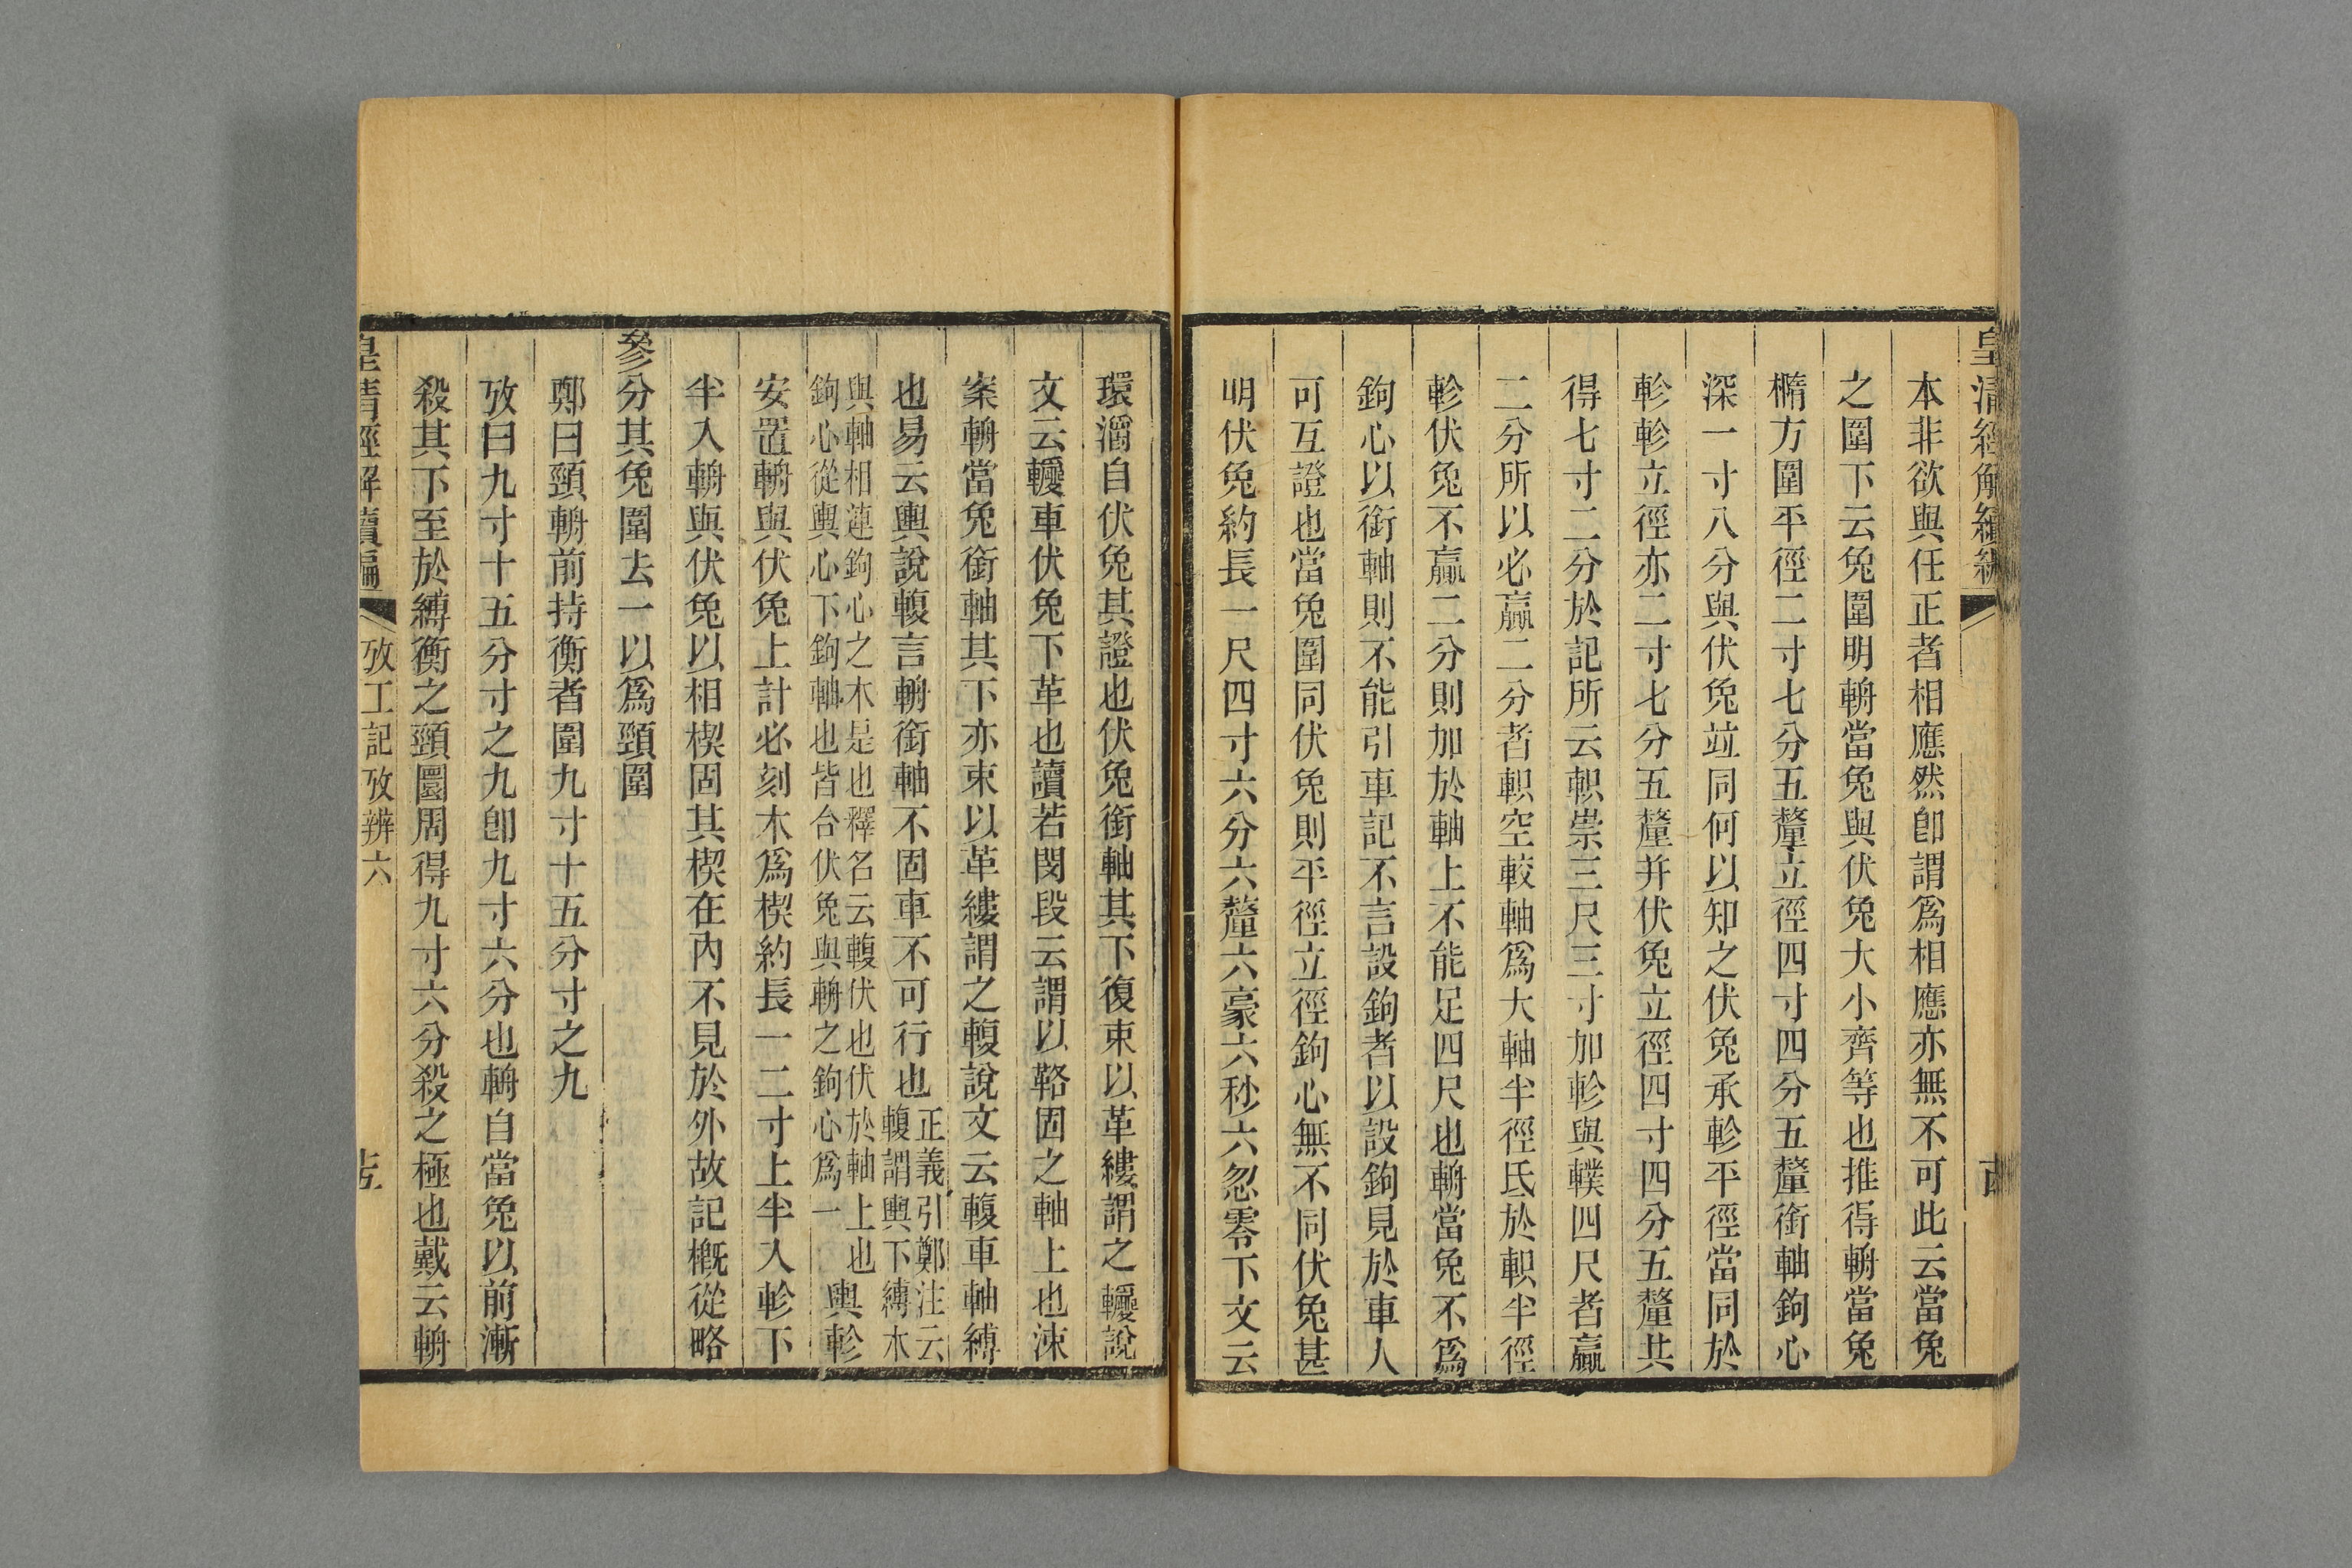 皇清經解續編
本非欲與任正者相應然卽謂爲相應亦無不可此云當兔
之圍下云兔圍明輈當兔與伏兔大小齊等也推得輈當兔
橢方圍平徑二寸七分五釐立徑四寸四分五釐銜軸鉤心
深一寸八分與伏兔竝同何以知之伏兔承軫平徑當同於
軫軫立徑亦二寸七分五釐并伏兔立徑四寸四分五釐共
得七寸二分於記所云軹崇三尺三寸加軫與轐四尺者贏
二分所以必贏二分者軹空較軸爲大軸半徑氐於軹半徑
軫伏兔不贏二分則加於軸上不能足四尺也輈當兔不爲
鉤心以銜軸則不能引車記不言設鉤者以設鉤見於車人
可互證也當兔圍同伏兔則平徑立徑鉤心無不同伏兔甚
明伏兔約長一尺四寸六分六釐六豪六秒六忽零下文云
環灂自伏兔其證也伏兔銜軸其下復束以革縷謂之䡩說
文云䡩車伏兔下革也讀若閔段云謂以鞈固之軸上也涑
案輈當兔銜軸其下亦束以革縷謂之輹說文云輹車軸縛
也易云輿說輹言輈銜軸不固車不可行也正義引鄭注云
輹謂輿下縛木
與軸相連鉤心之木是也釋名云輹伏也伏於軸上也
鉤心從輿心下鉤軸也皆合伏兔與輈之鉤心爲一輿軫
安置輈與伏兔上計必刻木爲楔約長一二寸上半入軫下
半入輈與伏兔以相楔固其楔在內不見於外故記槪從略
參分其兔圍去一以爲頸圍
鄭曰頸輈前持衡者圍九寸十五分寸之九
攷曰九寸十五分寸之九卽九寸六分也輈自當兔以前漸
殺其下至於縛衡之頸圜周得九寸六分殺之極也戴云輈
皇清經解續編 攷工記攷辨六